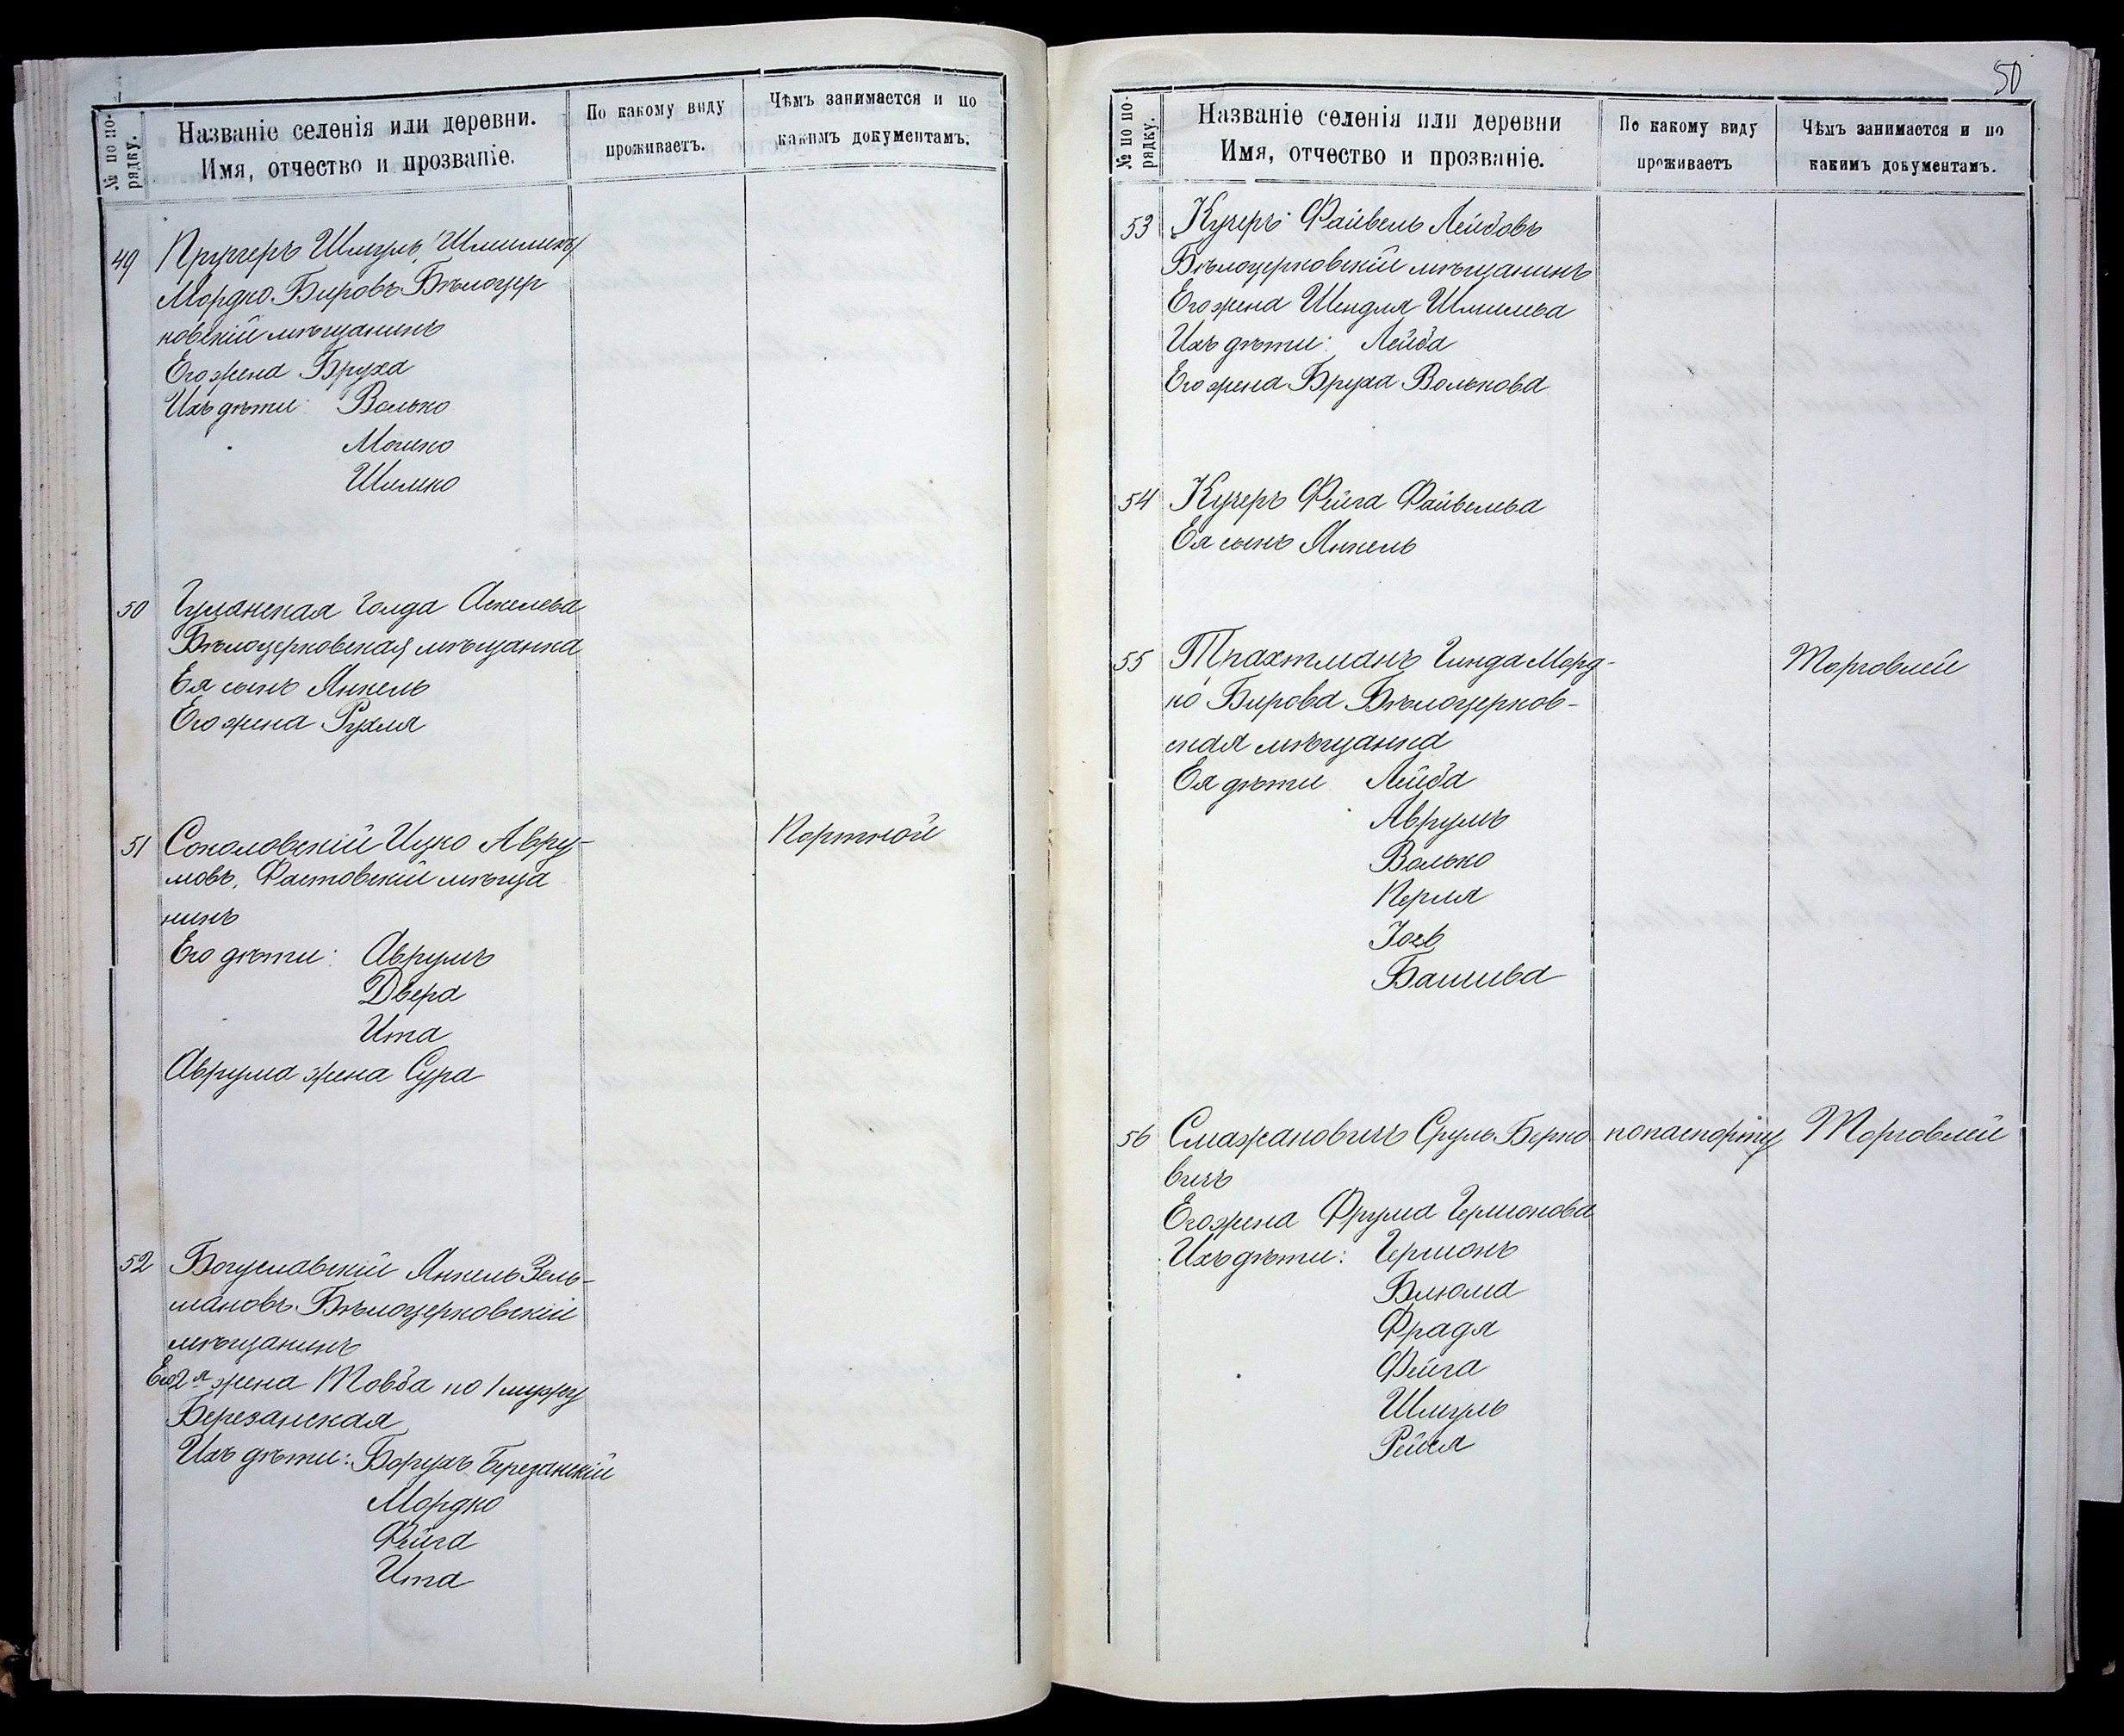 № по по-
рядку.
Названіе селенія или деревни.
Имя, отчество и прозваніе.
По какому виду
проживаетъ.
Чѣмъ занимается и по
какимъ документамъ.
49 Пругеръ Шмуль /Шмиликъ/
Мордко-Бировъ Бѣлоцер
ковскій мѣщанинъ
Его жена Бруха
Ихъ дѣти: Волько
Мошко
Шилько
50 Гуманская Голда Аскелева
Бѣлоцерковская мѣщанка
Ея сынъ Янкель
Его жена Рухля
51 Соколовскій Ицко Авру-
мовъ, Фастовскій мѣща
нинъ
Портной
Его дѣти: Аврумъ
Двера
Ита
Аврума жена Сура
52 Богуславскій Янкель Зель-
мановъ Бѣлоцерковскій
мѣщанинъ
Его 2я жена Товба по 1 мужу
Березанская
Ихъ дѣти: Борухъ Березанскій
Мордко
Фейга
Ита
50
№ по по-
рядку.
Названіе селенія или деревни
Имя, отчество и прозваніе.
По какому виду
проживаетъ
Чѣмъ занимается и по
какимъ документамъ.
53 Кучеръ Файвель Лейбовъ
Бѣлоцерковскій мѣщанинъ
Его жена Шендля Шмилева
Ихъ дѣти: Лейба
Его жена Бруха Волькова
54 Кучеръ Фейга Файвелева
Ея сынъ Янкель
55 Трахтманъ Гинда Морд-
ко Бирова Бѣлоцерков-
ская мѣщанка
Торговлей
Ея дѣти Лейба
Аврумъ
Волько
Перля
Іось
Башива
56 Смажановичъ Сруль Берко
вичъ
по паспорту
Торговлей
Его жена Фрума Гершонова
Ихъ дѣти: Гершонъ
Блюма
Фрадя
Фейга
Шмуль
Рейзя